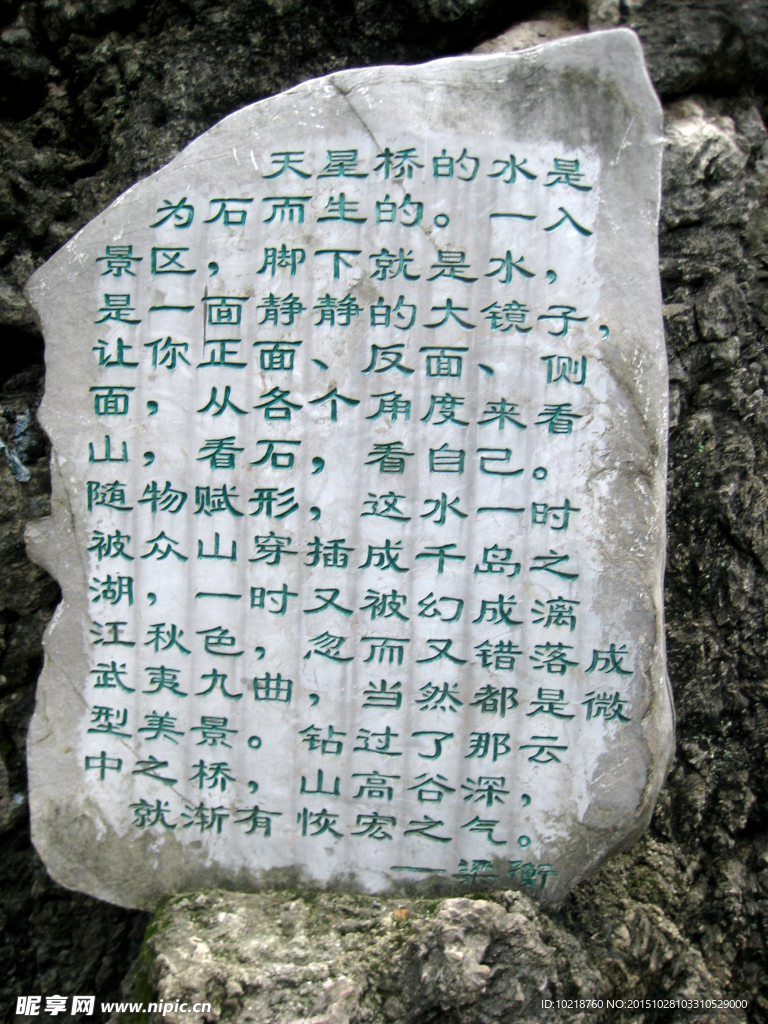 天星桥的水是
为石而生的。一入
景区，脚下就是水，
是一面静静的大镜子，
让你正面、反面、侧
面，从各个角度来看
山，看石，看自己。
随物赋形，这水一时
被众山穿插成千岛之
湖，一时又被幻成漓
江秋色，忽而又错落成
武夷九曲，当然都是微
型美景。钻过了那云
中之桥，山高谷深，
就渐有恢宏之气。
——梁衡
昵享网 www.nipic.cn
ID:10218760 NO:20151028103310529000